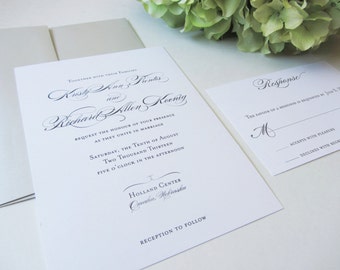 Together with their Families
Kristy Ann Prentis
and
Richard Allen Koenig
request the honour of your presence
as they unite in marriage
Saturday, the Tenth of August
Two Thousand Thirteen
five o'clock in the afternoon
Holland Center
Omaha, Nebraska
reception to follow
Response
The favour of a response is requested by
M
accepts with pleasure
declines with regret